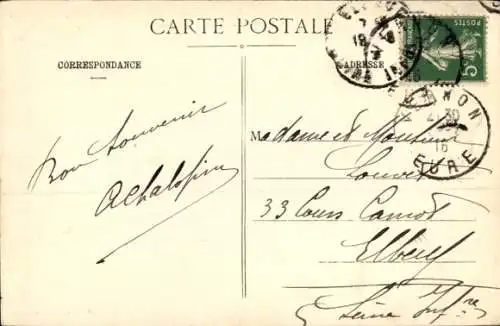 CARTE POSTALE
CORRESPONDANCE
ADRESSE
POSTES
5
NON
EURE
Bon Souvenir
Madame et Monsieur
Louvet
33 Cours Carnot
Elbeuf
Seine Infre